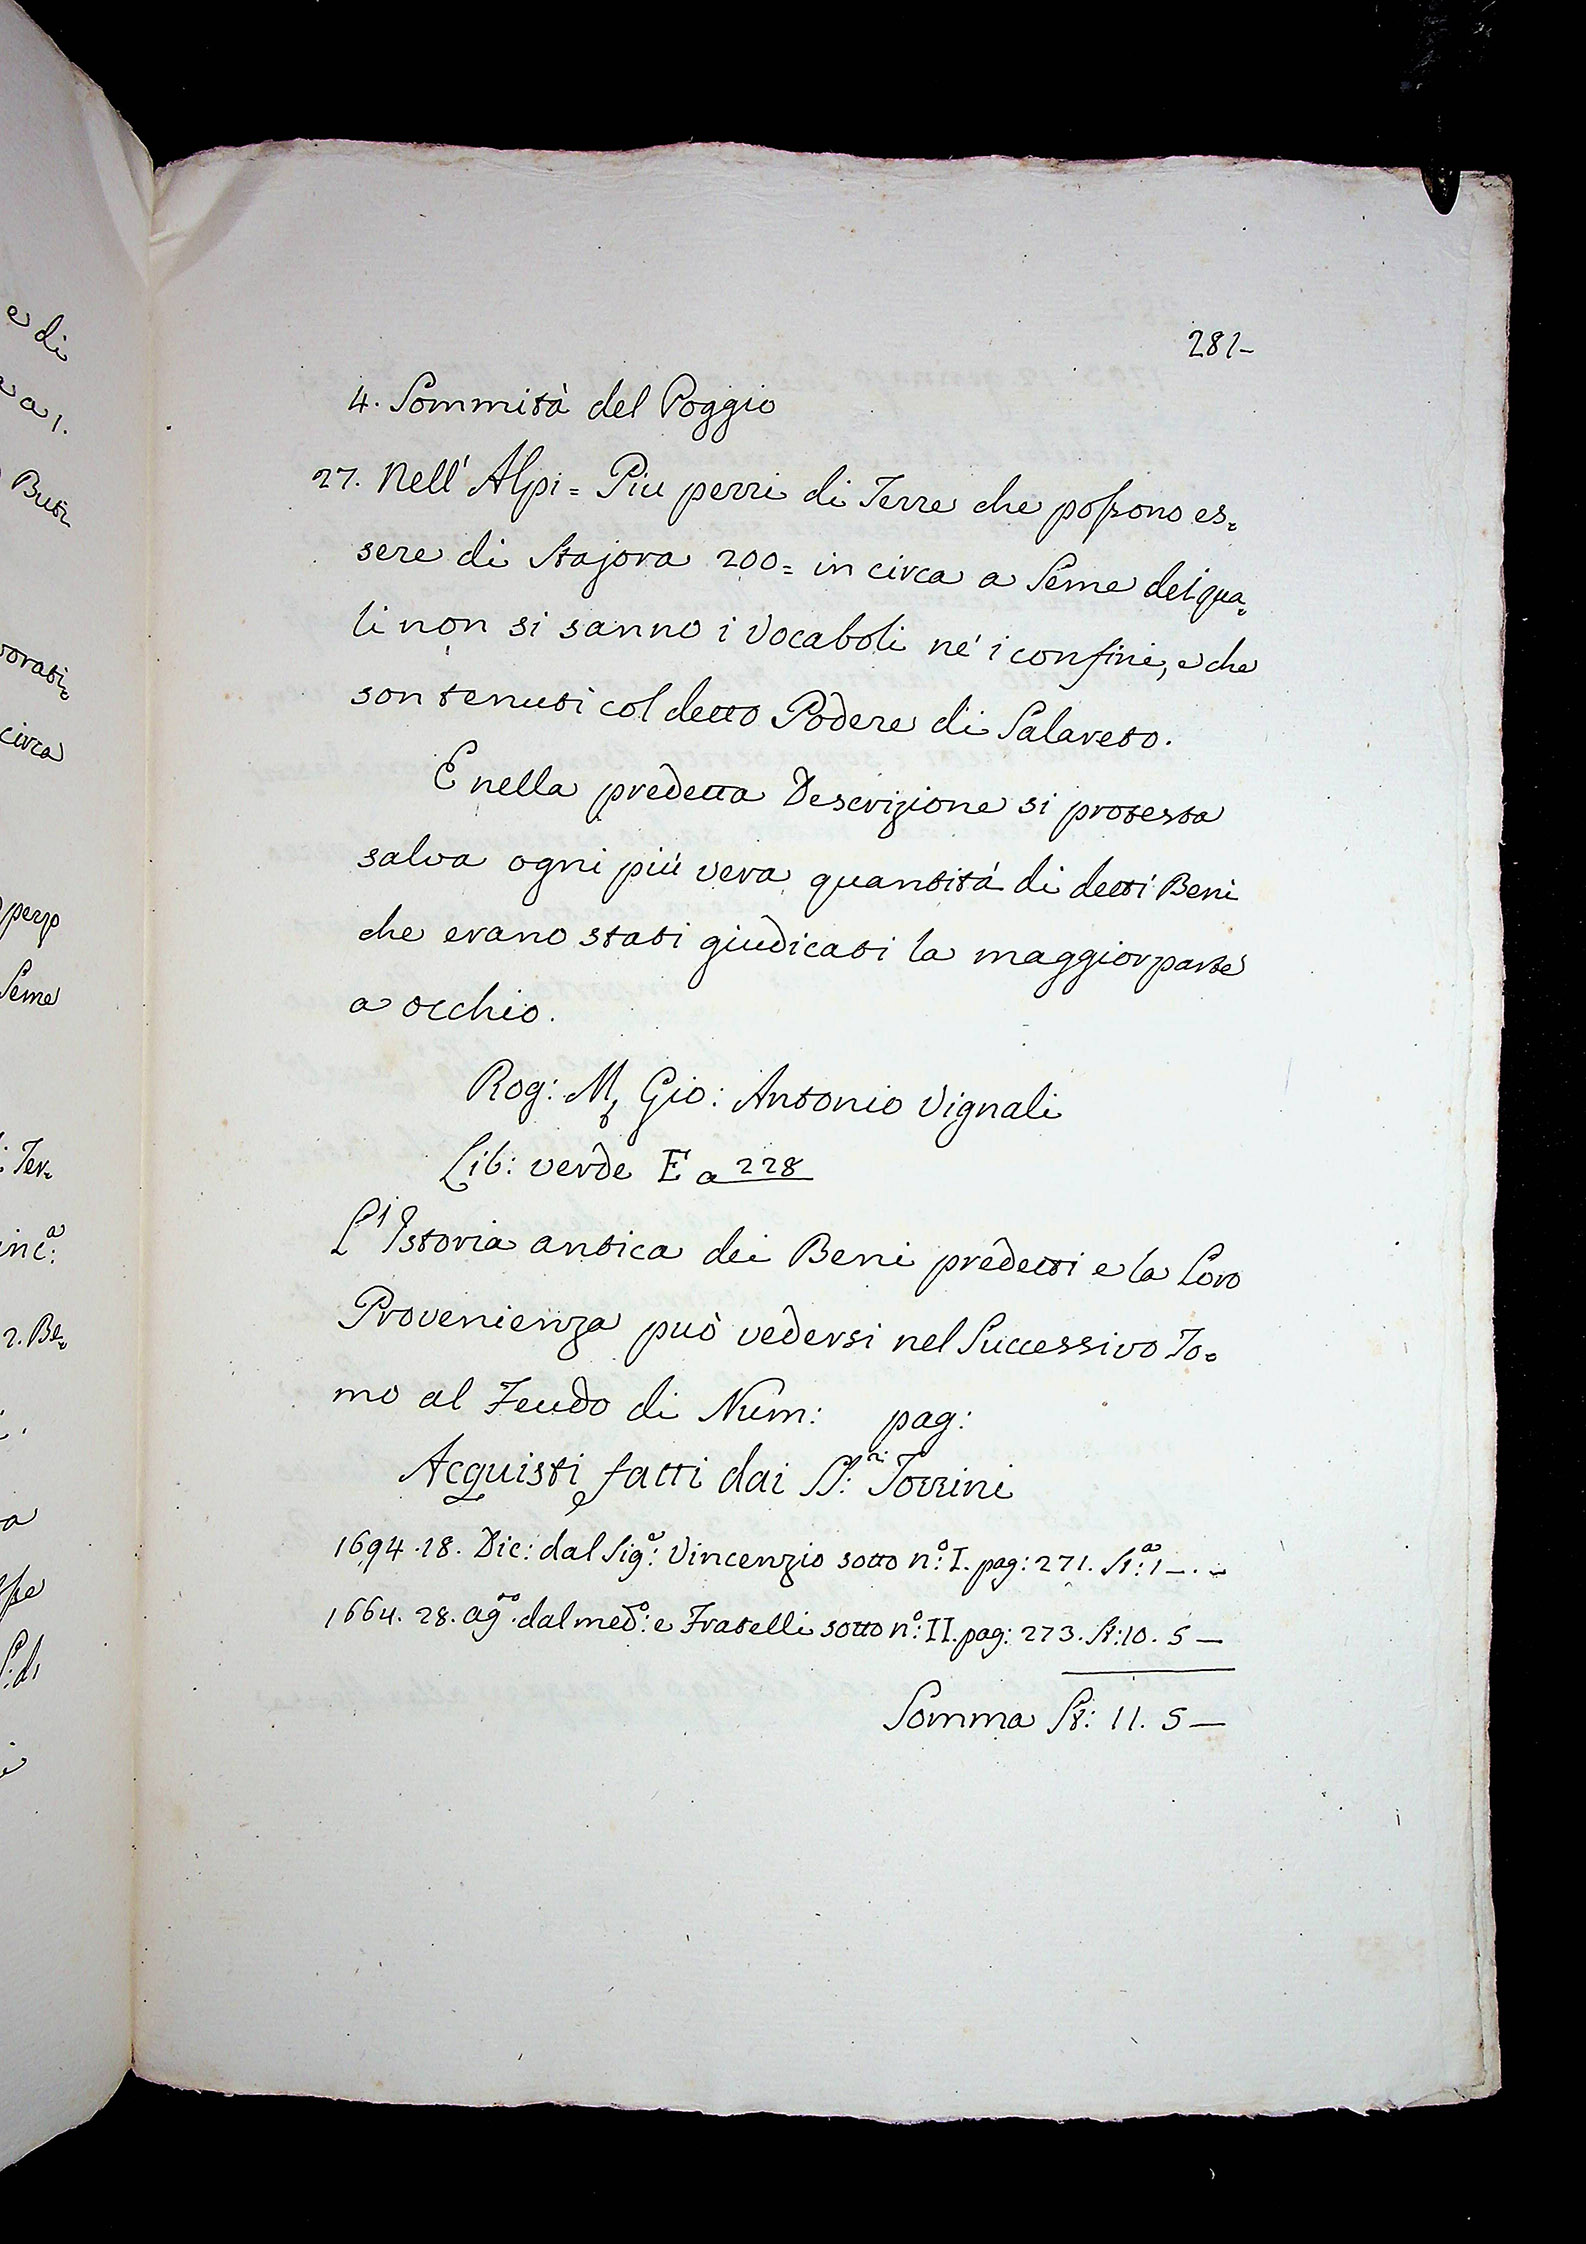 e di
a a 1.
Buti
vorati=
circa
pezzo
Seme
: Ter=
inc:ª
2. Be=
281-
4. Sommità del Poggio
27. Nell' Alpi = Piu pezzi di Terre che possono es=
sere di Stajora 200= in circa a Seme dei qua=
li non si sanno i Vocaboli ne' i confini, e che
son tenuti col detto Podere di Salareto.
E nella predetta Descrizione si protesta
salva ogni più vera quantità di detti Beni
che erano stati giudicati la maggior parte
a occhio.
Rog: M. Gio: Antonio Vignali
Lib: verde E a 228
L' Istoria antica dei Beni predetti e la Loro
Provenienza può vedersi nel Successivo To=
mo al Feudo di Num: pag:
Acquisti fatti dai SS:ri Torrini
1694. 18. Dic: dal Sig:e Vincenzio sotto n:º I. pag: 271. St:ª 1 — . —
1664. 28. ag:to dal med:º e Fratelli sotto n:º II. pag: 273. St: 10. 5 —
Somma St: 11. 5 —